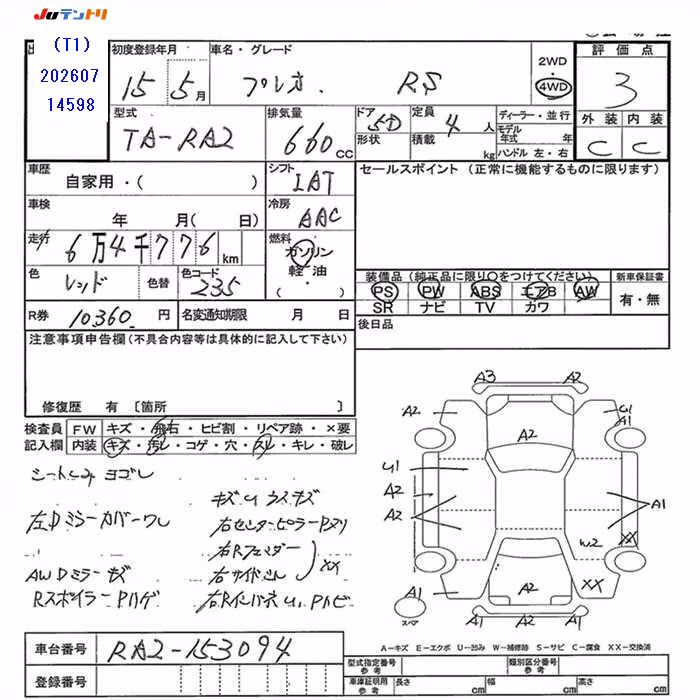 JUテントリ
(T1)
202607
14598
初度登録年月
車名・グレード
15 5月
プレオ RS
2WD・
4WD
評価点
3
外装 内装
C C
型式
TA-RA2
排気量
660cc
ドア
5D
形状
定員
4人
積載
kg
ディーラー・並行
モデル年式 年
ハンドル 左・右
車歴
自家用・( )
シフト
IAT
セールスポイント (正常に機能するものに限ります)
車検
年 月( 日)
冷房
AAC
走行
6万4千776km
燃料
ガソリン
軽油
( )
色
レッド
色替
色コード
235
装備品(純正品に限り○をつけてください)
PS PW ABS エアB AW
SR ナビ TV カワ
新車保証書
有・無
R券 10360円
名変通知期限 月 日
後日品
注意事項申告欄(不具合内容等は具体的に記入して下さい)
修復歴 有〔箇所 〕
検査員
記入欄
FW キズ・飛石・ヒビ割・リペア跡・×要
内装 キズ・汚レ・コゲ・穴・スレ・キレ・破レ
シートしみ ヨゴレ
キズU ウスキズ
左Dミラーカバーワレ
右センターピラーPヌリ
右Rフェンダー
XX
AWDミラーキズ
右サイドさん
RスポイラーPハゲ
右RインパネU1Pハビ
A3 A2
A2 A2 U1
A1
U1
A2
A2
A2
A1
W2 XX
A1 A2 XX
スペア
A1 A2 A1
A-キズ E-エクボ U-凹み W-補修跡 S-サビ C-腐食 XX-交換済
車台番号 RA2-153094
登録番号
型式指定番号
参考
類別区分番号
参考
車庫証明用
参考
長さ cm 幅 cm 高さ cm